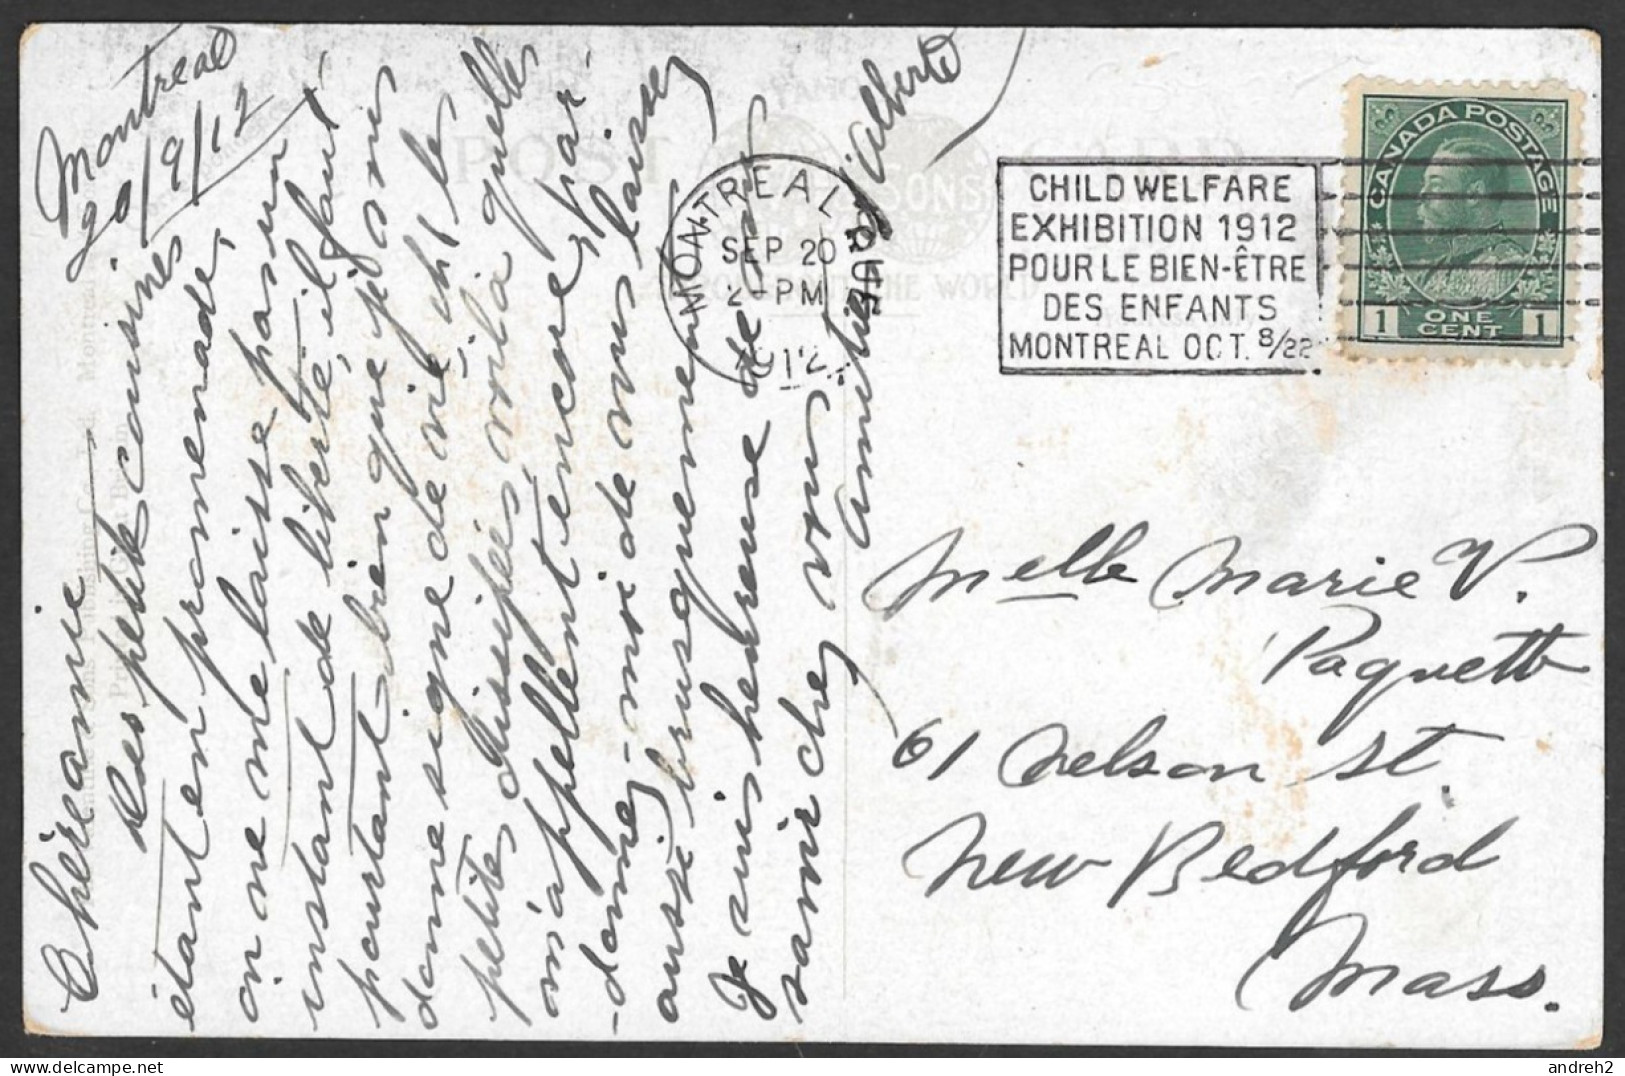 Montreal
20/9/12
Chère amie
Les petite cousines
étant en promenade,
on ne me laisse pas un
instant de liberté, il faut
pourtant bien que je vous
donne signe de vie et les
petites dissipées, voilà quelles
m'appellent encore, par-
-donnez-moi de vous laisser
aussi brusquement
Je suis heureuse de vous
savoir chez vous
Amitiés
d'Alberte
POST CARD
SONS
THROUGHOUT THE WORLD
MONTREAL
SEP 20
2 PM
1912
CHILD WELFARE
EXHIBITION 1912
POUR LE BIEN-ÊTRE
DES ENFANTS
MONTREAL OCT. 8/22
CANADA POSTAGE
1 ONE CENT 1
Melle Marie V.
Paquette
61 Nelson St.
New Bedford
Mass.
andreh2